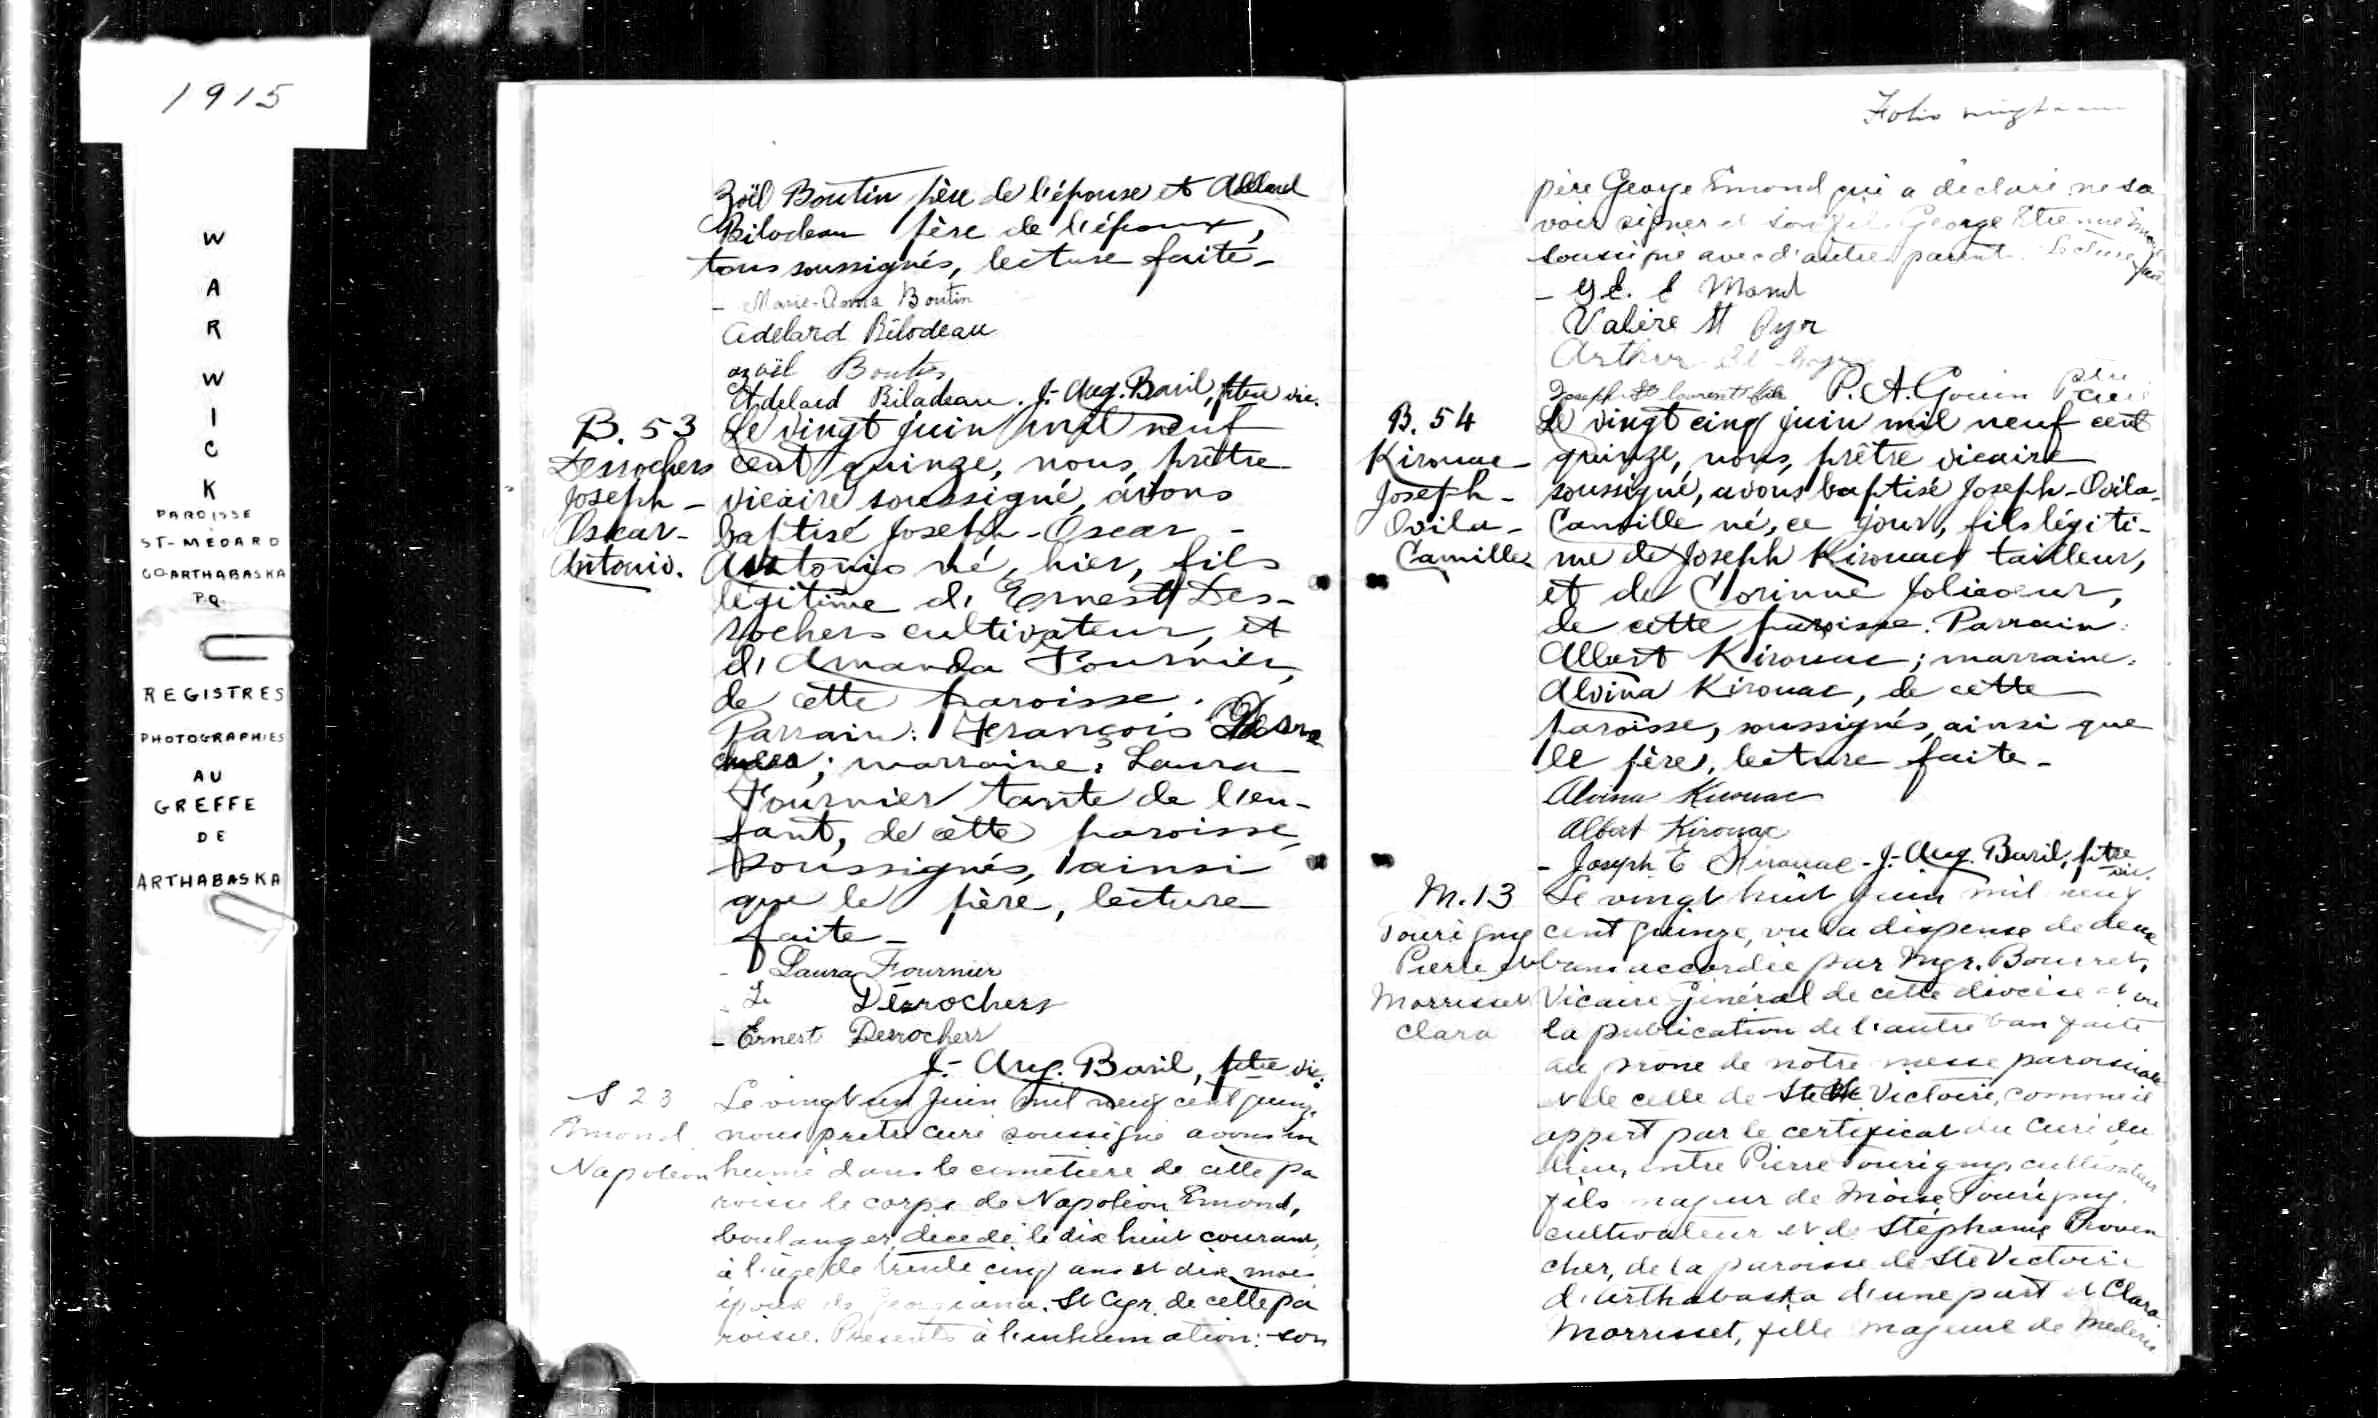 1915
W
A
R
W
I
C
K
PAROISSE
ST-MÉDARD
CO-ARTHABASKA
P.Q.
REGISTRES
PHOTOGRAPHIES
AU
GREFFE
DE
ARTHABASKA
Zoël Boutin père de l'épouse et Adelard
Bilodeau père de l'époux,
tous soussignés, lecture faite-
- Marie-Anna Boutin
Adelard Bilodeau
azaël Boutin
Adelard Biladeau. J.-Aug. Baril, ptre vic.
B. 53
Desrochers
Joseph-
Oscar-
Antonio.
Le vingt juin mil neuf
cent quinze, nous, prêtre
vicaire soussigné, avons
baptisé Joseph-Oscar-
Antonio né, hier, fils
légitime d'Ernest Des-
rochers cultivateur, et
d'Amanda Fournier,
de cette paroisse.
Parrain: François Desro
chers; marraine: Laura
Fournier tante de l'en-
fant, de cette paroisse,
soussignés, ainsi
que le père, lecture
faite-
- Laura Fournier
Desrochers
- Ernest Desrochers
J.-Aug. Baril, ptre vic.
S 23
Emond
Napoléon
Le vingt un juin mil neuf cent quinze
nous pretre curé soussigné avons in
humé dans le cimetière de cette pa
roisse le corps de Napoléon Emond,
boulanger, décédé le dix huit courant,
à l'age de trente cinq ans et dix mois
époux de Georgiana St Cyr de cette pa
roisse. Présents à l'inhumation: son
Folio
père George Emond qui a déclaré ne sa
voir signer et son fils George Etienne Emond
soussigné avec d'autres parents. Lecture faite
- G. E. E Mond
Valère St Cyr
Arthur St
Joseph St laurent fils P. A. Gouin ptre
Curé
B. 54
Kirouac
Joseph-
Ovila-
Camille
Le vingt cinq juin mil neuf cent
quinze, nous, prêtre vicaire
soussigné, avons baptisé Joseph-Ovila-
Camille né, ce jour, fils légiti-
me de Joseph Kirouac tailleur,
et de Corinne Jolicoeur,
de cette paroisse. Parrain:
Albert Kirouac; marraine:
Alvina Kirouac, de cette
paroisse, soussignés, ainsi que
le père, lecture faite-
Alvina Kirouac
Albert Kirouac
- Joseph E Kirouac - J.-Aug. Baril, ptre
vic.
M. 13
Tourigny
Pierre et
Morrisset
Clara
Le vingt huit juin mil neuf
cent quinze, vu la dispense de deux
bans accordée par Mgr. Bourret,
Vicaire Général de cette diocèse et vu
la publication de l'autre ban faite
au prone de notre messe paroissiale
et de celle de Ste Victoire, comme il
appert par le certificat du Curé du
lieu, entre Pierre Tourigny, cultivateur
fils majeur de Moïse Tourigny
cultivateur et de Stéphanie Proven
cher, de la paroisse de Ste Victoire
d'Arthabaska d'une part et Clara
Morrisset, fille majeure de